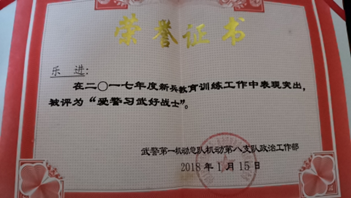 荣誉证书
乐 进:
在二〇一七年度新兵教育训练工作中表现突出,
被评为“爱警习武好战士”。
武警第一机动总队机动第八支队政治工作部
2018年1月15日